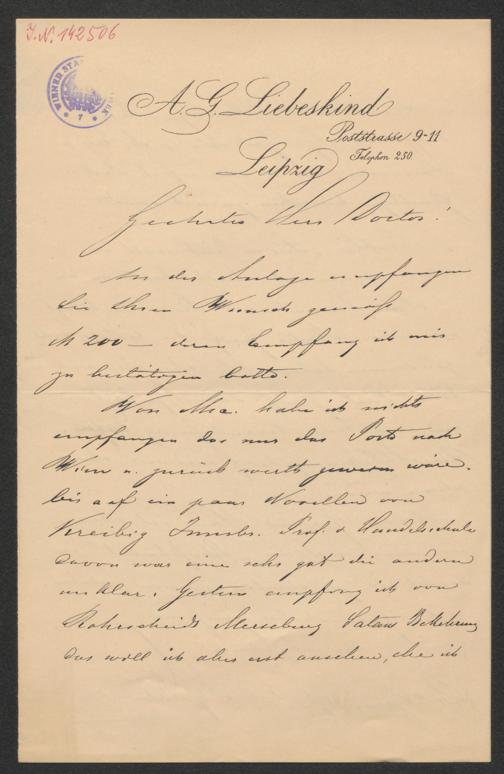 J.N. 142506
WIENER STA
7
A. G. Liebeskind
Poststrasse 9-11
Telephon 230.
Leipzig
Geehrter Herr Doctor!
In der Anlage empfangen
Sie Ihrem Wunsch gemäß
M 200 — deren Empfang ich mir
zu bestätigen bitte.
Von Msc. habe ich nichts
empfangen das nur das Porto nach
Wien u. zurück werth gewesen wäre.
bis auf ein paar Novellen von
Kreibig Innsbr. Prof. d Handelsschule
davon war eine sehr gut die andern
unklar. Gestern empfing ich von
Rohrscheidt Merseburg Satans Bekehrung
das will ich aber erst ansehen, ehe ich